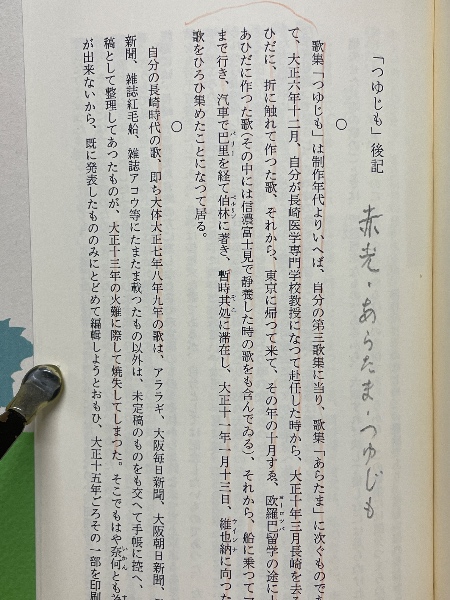 「つゆじも」後記
赤光・あらたま・つゆじも
○
歌集「つゆじも」は制作年代よりいへば、自分の第三歌集に当り、歌集「あらたま」に次ぐものであ
て、大正六年十二月、自分が長崎医学専門学校教授になつて赴任した時から、大正十年三月長崎を去る
ひだに、折に触れて作つた歌、それから、東京に帰つて来て、その年の十月すゑ、欧羅巴留学の途に上
あひだに作つた歌(その中には信濃富士見で静養した時の歌をも含んでゐる)、それから、船に乗つて
まで行き、汽車で巴里を経て伯林に著き、暫時其処に滞在し、大正十一年一月十三日、維也納に向つた
歌をひろひ集めたことになつて居る。
○
自分の長崎時代の歌、即ち大体大正七年八年九年の歌は、アララギ、大阪毎日新聞、大阪朝日新聞、
新聞、雑誌紅毛船、雑誌アコウ等にたまたま載つたもの以外は、未定稿のものをも交へて手帳に控へ、
稿として整理してあつたものが、大正十三年の火難に際して焼失してしまつた。そこでもはや奈何とも
が出来ないから、既に発表したもののみにとどめて編輯しようとおもひ、大正十五年ごろその一部を印刷